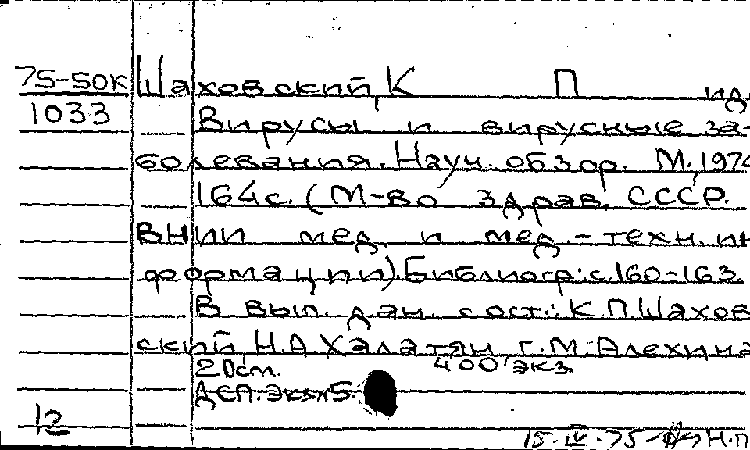 75-50К Шаховский, К П ид
1033 Вирусы и вирусные за-
болевания. Науч. обзор. М., 1974
164 с. (М-во здрав. СССР.
ВНИИ мед. и мед.-техн. ин
формации). Библиогр.: с. 160-163.
В вып. дан. сост.: К.П. Шахов
ский Н.А Халатян Г.М. Алехина
20 см. 400 экз.
ДСП. Экз. 5.
12
15.IV.75 Н.П